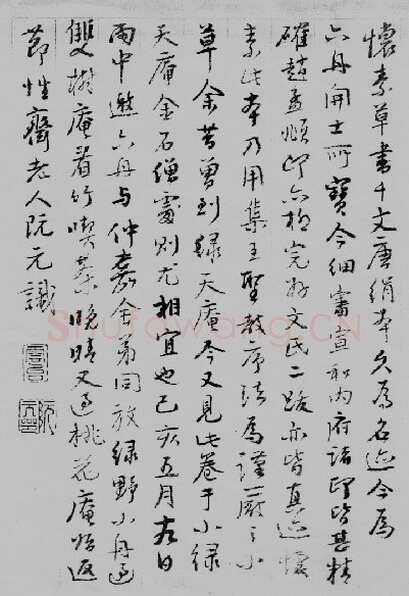 懷素草書千文唐絹本久爲名迹今爲
六舟開士所寶今細審宣和內府諸印皆甚精
確趙孟頫印亦極完好文氏二跋亦皆真迹懷
素此本乃用集王聖教序法爲謹嚴之小
草余昔曾到綠天庵今又見此卷于小綠
天庵金石僧處則尤相宜也己亥五月日
雨中邀六舟与仲嘉余弟同放綠野小舟過
雙樹庵看竹喫茶晚晴又過桃花庵始返
節性齋老人阮元識
Shufawang.CN